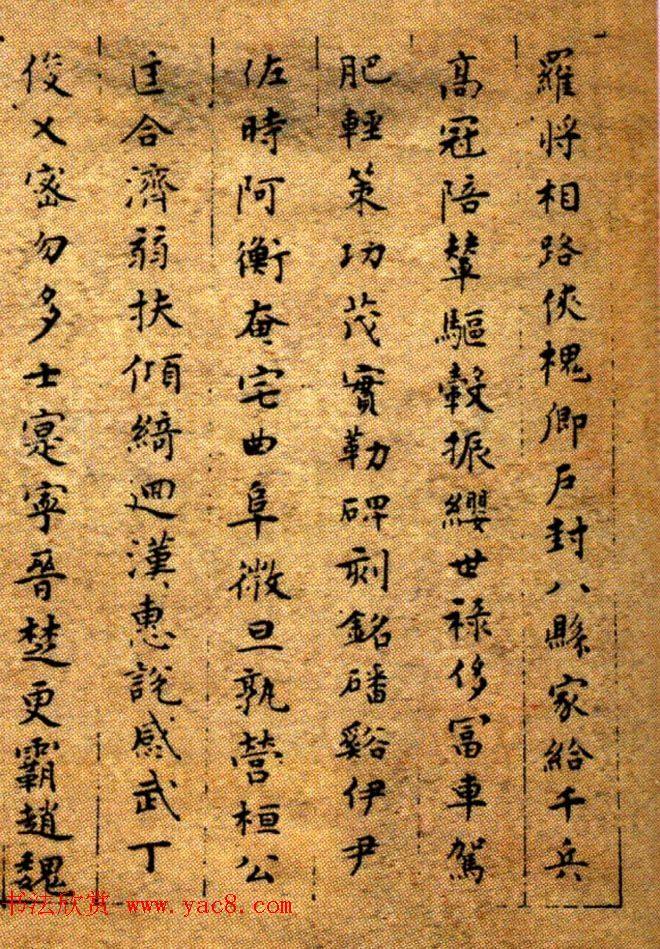 羅將相路俠槐卿戶封八縣家給千兵
高冠陪輦驅轂振纓世祿侈冨車駕
肥輕策功茂實勒碑刻銘磻谿伊尹
佐時阿衡奄宅曲阜微旦孰營桓公
匡合濟弱扶傾綺迴漢惠說感武丁
俊乂密勿多士寔寧晉楚更霸趙魏
书法欣赏-www.yac8.com